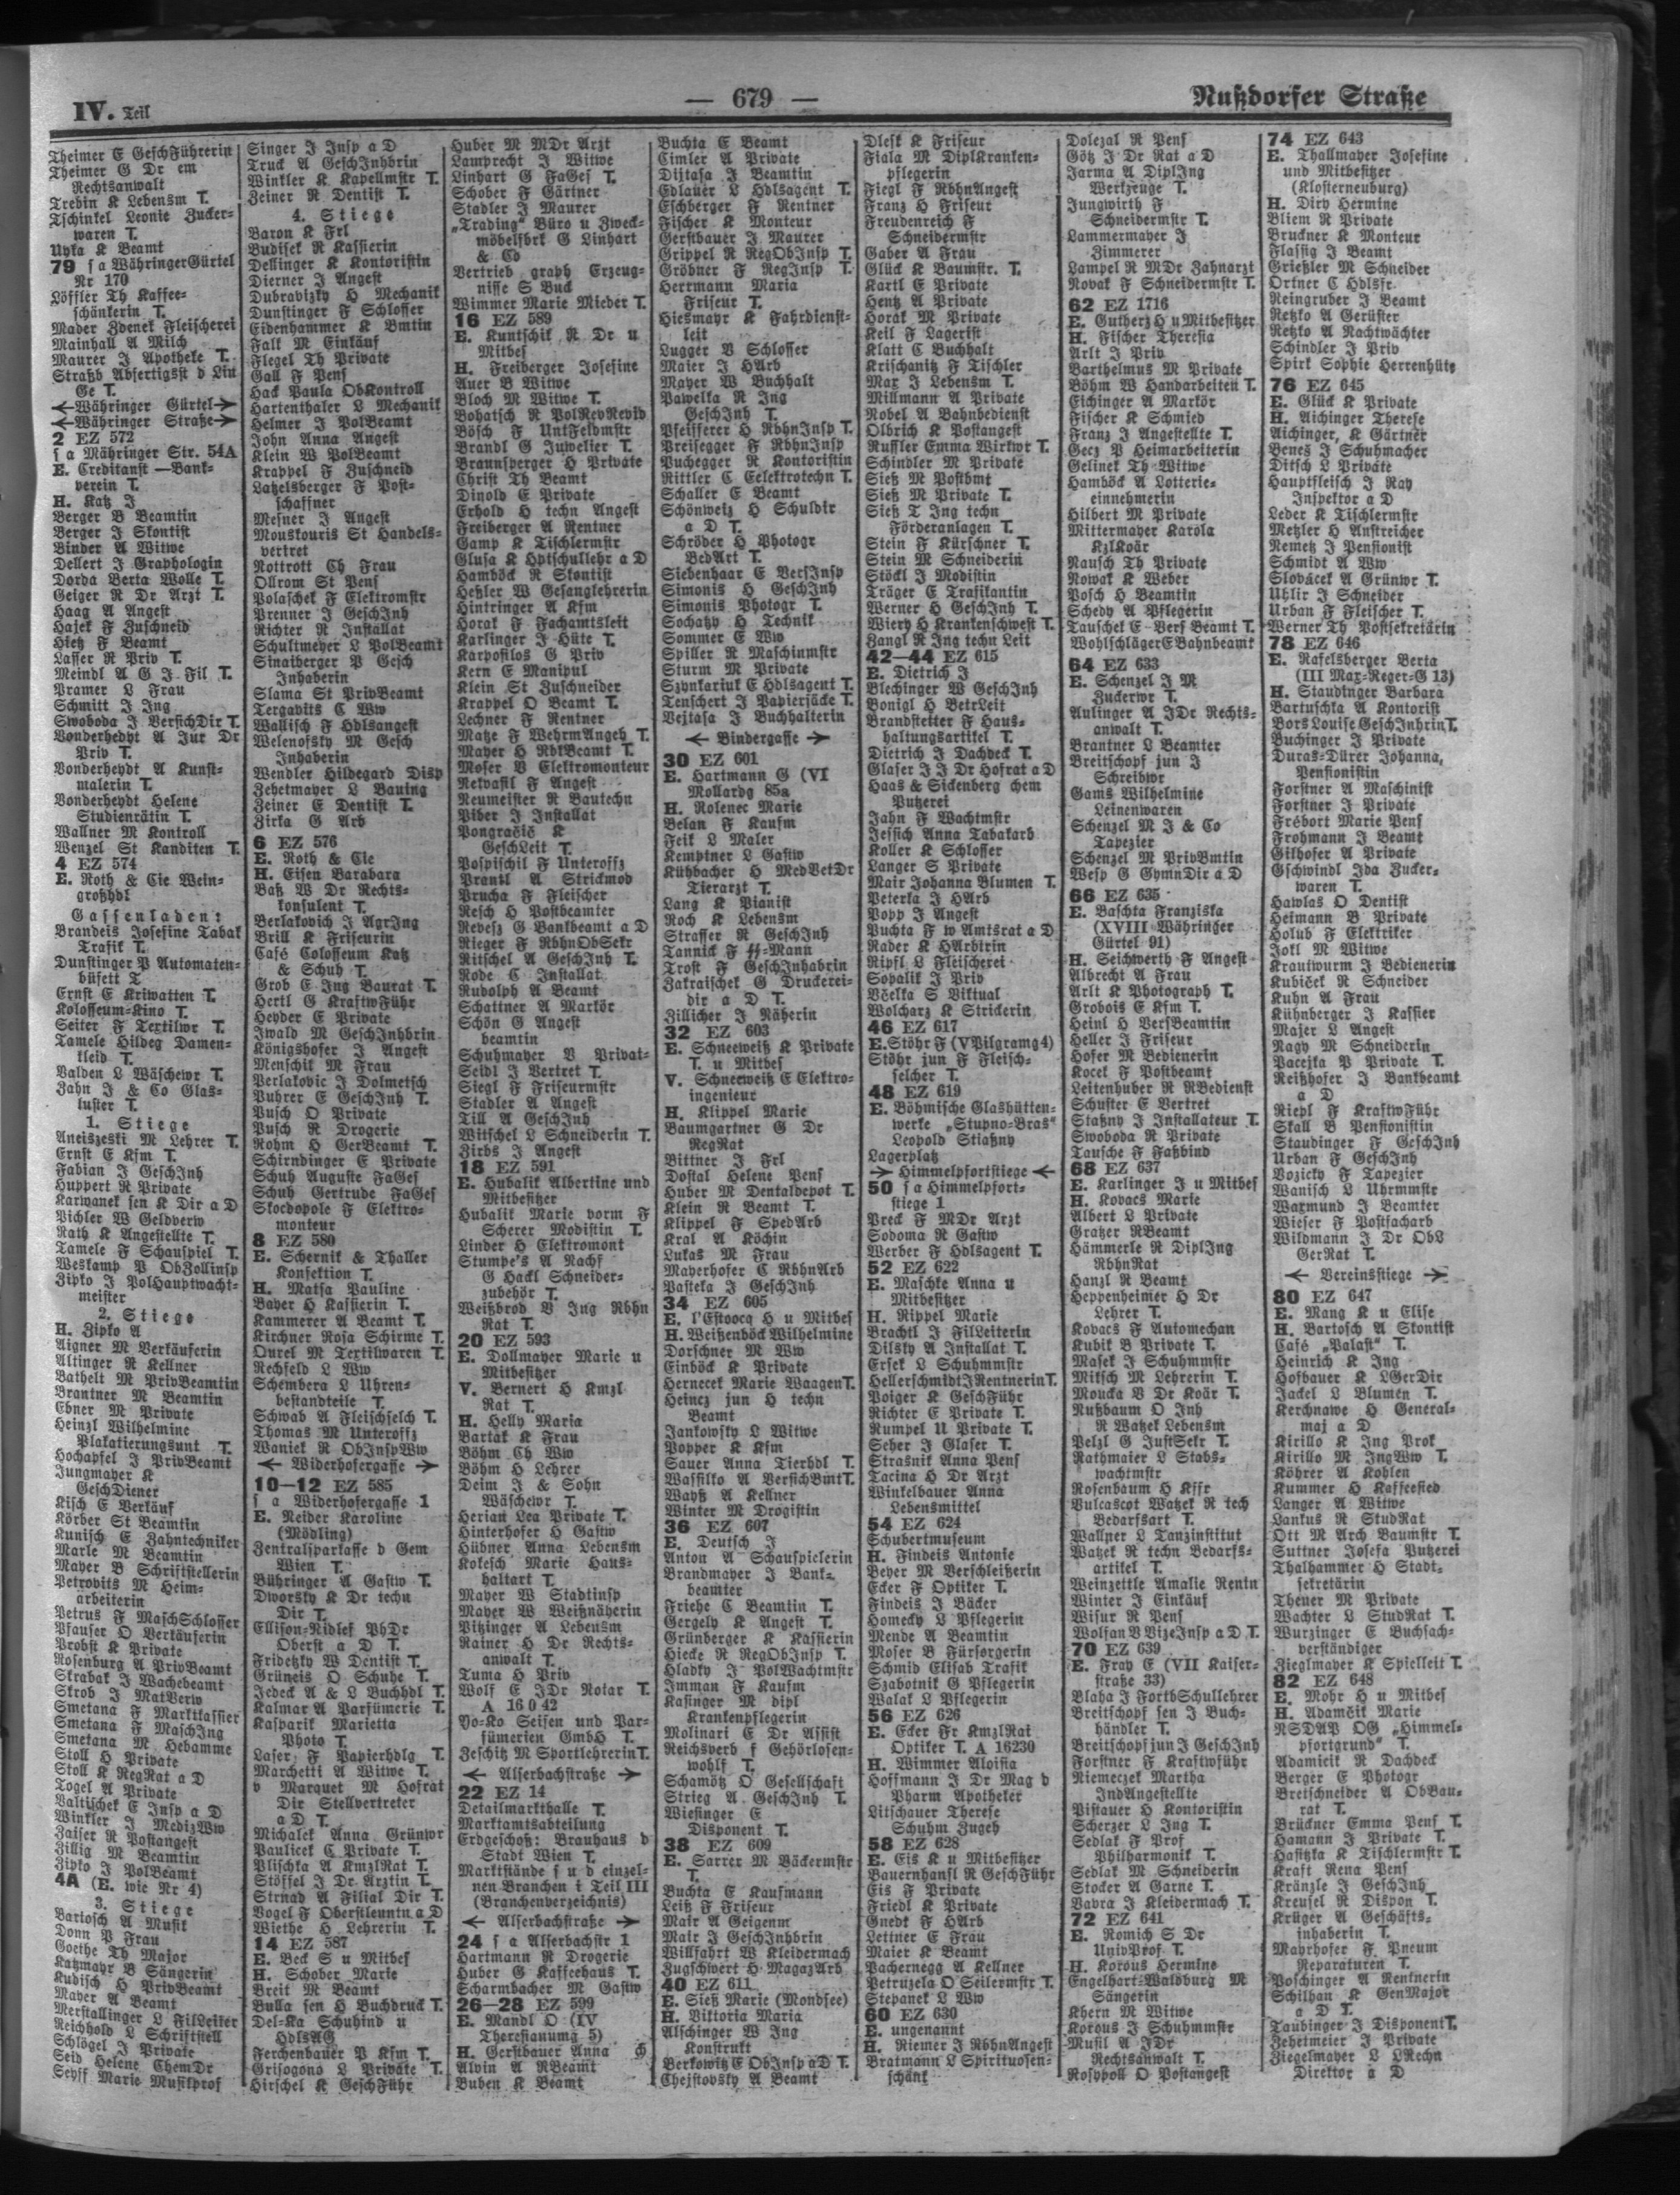 IV. Teil
— 679 —
Nußdorfer Straße
Theimer E GeschFührerin
Theimer G Dr em
Rechtsanwalt
Trebin K Lebensm T.
Tschinkel Leonie Zucker-
waren T.
Uyka K Beamt
79 s a WähringerGürtel
Nr 170
Löffler Th Kaffee-
schänkerin T.
Mader Zdenek Fleischerei
Mainhall A Milch
Maurer J Apotheke T.
Straßb Abfertigsst d Lin
Ge T.
←Währinger Gürtel→
←Währinger Straße→
2 EZ 572
s a Mähringer Str. 54A
E. Creditanst —Bank-
verein T.
H. Katz J
Berger B Beamtin
Berger J Skontist
Binder A Witwe
Dellert J Graphologin
Dorda Berta Wolle T.
Geiger R Dr Arzt T.
Haag A Angest
Hajek F Zuschneid
Hietz F Beamt
Lasser R Priv T.
Meindl A G J Fil T.
Pramer L Frau
Schmitt J Ing
Swoboda J VersichDir T.
Vonderheydt A Jur Dr
Priv T.
Vonderheydt A Kunst-
malerin T.
Vonderheydt Helene
Studienrätin T.
Wallner M Kontroll
Wenzel St Kanditen T.
4 EZ 574
E. Roth & Cie Wein-
großhdl
Gassenladen:
Brandeis Josefine Tabak
Trafik T.
Dunstinger P Automaten-
büfett T
Ernst E Kriwatten T.
Kolosseum-Kino T.
Seiter F Textilwr T.
Tamele Hildeg Damen-
kleid T.
Valden L Wäschewr T.
Zahn J & Co Glas-
luster T.
1. Stiege
Aneiszeski M Lehrer T.
Ernst E Kfm T.
Fabian J GeschInh
Huppert R Private
Karwanek sen K Dir a D
Pichler W Geldverw
Rath K Angestellte T.
Tamele F Schauspiel T.
Weskamp P ObZollinsp
Zipko J PolHauptwacht-
meister
2. Stiege
H. Zipko A
Aigner M Verkäuferin
Altinger R Kellner
Bathelt M PrivBeamtin
Brantner M Beamtin
Ebner M Private
Heinzl Wilhelmine
Plakatierungsunt T.
Hochapfel J PrivBeamt
Jungmayer K
GeschDiener
Kisch E Verkäuf
Körber St Beamtin
Kunisch E Zahntechniker
Marle M Beamtin
Mayer B Schriftstellerin
Petrovits M Heim-
arbeiterin
Petrus F MaschSchlosser
Pfauser O Verkäuferin
Probst K Private
Rosenburg A PrivBeamt
Skrabak J Wachebeamt
Skrob J MatVerw
Smetana F Marktkassier
Smetana F MaschIng
Smetana M Hebamme
Stoll H Private
Stoll K RegRat a D
Togel A Private
Valtischek E Insp a D
Winkler J MedizWw
Zaiser R Postangest
Zillig M Beamtin
Zipko J PolBeamt
4A (E. wie Nr 4)
3. Stiege
Bartosch A Musik
Donn P Frau
Goethe Th Major
Katzmayr B Sängerin
Kubisch H PrivBeamt
Mayer A Beamt
Merstallinger L FilLeiter
Reichhold L Schriftstell
Schlögel J Private
Seid Helene ChemDr
Seyff Marie Musikprof
Singer J Insp a D
Truck A GeschInhbrin
Winkler K Kapellmstr T.
Zeiner R Dentist T.
4. Stiege
Baron K Frl
Budisek R Kassierin
Dellinger K Kontoristin
Dierner J Angest
Dubravizky H Mechanik
Dunstinger F Schlosser
Eibenhammer K Bmtin
Fall M Einkäuf
Flegel Th Private
Gall F Pens
Hack Paula ObKontroll
Hartenthaler L Mechanik
Helmer J PolBeamt
John Anna Angest
Klein W PolBeamt
Krappel F Zuschneid
Latzelsberger F Post-
schaffner
Mesner J Angest
Mouskouris St Handels-
vertret
Nottrott Ch Frau
Ollrom St Pens
Polaschek F Elektromstr
Prenner J GeschInh
Richter R Installat
Schultmeyer L PolBeamt
Sinaiberger P Gesch
Inhaberin
Slama St PrivBeamt
Tergavits C Ww
Wallisch F Hdlsangest
Welenofsky M Gesch
Inhaberin
Wendler Hildegard Disp
Zehetmayer L Bauing
Zeiner E Dentist T.
Zirka G Arb
6 EZ 576
E. Roth & Cie
H. Eisen Barabara
Baß W Dr Rechts-
konsulent T.
Berlakovich J AgrIng
Brill K Friseurin
Café Colosseum Katz
& Schuh T.
Grob E Ing Baurat T.
Hertl G KraftwFühr
Heyder E Private
Iwald M GeschInhbrin
Königshofer J Angest
Menschik M Frau
Perlakovic J Dolmetsch
Puhrer E GeschInh T.
Pusch O Private
Pusch R Drogerie
Rohm H GerBeamt T.
Schirndinger E Private
Schuh Auguste FaGes
Schuh Gertrude FaGes
Skocdopole F Elektro-
monteur
8 EZ 580
E. Schernik & Thaller
Konfektion T.
H. Matsa Pauline
Bayer H Kassierin T.
Kammerer A Beamt T.
Kirchner Rosa Schirme T.
Ourel M Textilwaren T.
Rechfeld L Ww
Schembera L Uhren-
bestandteile T.
Schwab A Fleischselch T.
Thomas M Unteroffz
Waniek R ObInspWw
← Widerhofergasse →
10—12 EZ 585
s a Widerhofergasse 1
E. Neider Karoline
(Mödling)
Zentralsparkasse d Gem
Wien T.
Bühringer A Gastw T.
Dworsky K Dr techn
Dir T.
Ellison-Nidlef PhDr
Oberst a D T.
Fridetzky W Dentist T.
Grüneis O Schuhe T.
Jedeck A & L Buchhdl T.
Kalmar A Parfümerie T.
Kasparik Marietta
Photo T.
Laser F Papierhdlg T.
Marchetti A Witwe T.
v Marquet M Hofrat
Dir Stellvertreter
a D T.
Michalek Anna Grünwr
Paulicek C Private T.
Plischka A KmzlRat T.
Stöffel J Dr. Ärztin T.
Strnad A Filial Dir T.
Vogel F Oberstleuntn a D
Wiethe H Lehrerin T.
14 EZ 587
E. Beck S u Mitbes
H. Schober Marie
Breit M Beamt
Bulla sen H Buchdruck T.
Del-Ka Schuhind u
HdlsAG
Ferchenbauer P Kfm T.
Grisogono L Private T.
Hirschel K GeschFühr
Huber M MDr Arzt
Lamprecht J Witwe
Linhart G FaGes T.
Schober F Gärtner
Stadler J Maurer
„Trading" Büro u Zweck-
möbelfbrk G Linhart
& Co
Vertrieb graph Erzeug-
nisse S Buck
Wimmer Marie Mieder T.
16 EZ 589
E. Kuntschik R Dr u
Mitbes
H. Freiberger Josefine
Auer B Witwe
Bloch M Witwe T.
Bohatsch R PolRevRevid
Bösch F UntFeldmstr
Brandl G Juwelier T.
Braunsperger H Private
Christ Th Beamt
Dinold E Private
Erhold H techn Angest
Freiberger A Rentner
Gamp K Tischlermstr
Glusa K Hptschullehr a D
Hamböck R Skontist
Heßler W Gesanglehrerin
Hintringer A Kfm
Horak F Fachamtsleit
Karlinger J Hüte T.
Karpofilos G Priv
Kern E Manipul
Klein St Zuschneider
Krappel O Beamt T.
Lechner F Rentner
Matze F WehrmAngeh T.
Mayer H RbkBeamt T.
Moser V Elektromonteur
Nekvasil F Angest
Neumeister R Bautechn
Piber J Installat
Pongračič K
GeschLeit T.
Pospischil F Unteroffz
Prantl A Strickmod
Prucha F Fleischer
Resch H Postbeamter
Revesz G Bankbeamt a D
Rieger F RbhnObSekr
Ritschel A GeschInh T.
Rode C Installat
Rudolph A Beamt
Schattner A Markör
Schön G Angest
beamtin
Schuhmayer V Privat-
Seidl J Vertret T.
Siegl F Friseurmstr
Stadler A Angest
Till A GeschInh
Witschel L Schneiderin T.
Zirbs J Angest
18 EZ 591
E. Hubalik Albertine und
Mitbesitzer
Hubalik Marie vorm F
Scherer Modistin T.
Linder H Elektromont
Stumpe's A Nachf
G Hackl Schneider-
zubehör T.
Weißbrod V Ing Rbhn
Rat T.
20 EZ 593
E. Dollmayer Marie u
Mitbesitzer
V. Bernert H Kmzl
Rat T.
H. Helly Maria
Bartak K Frau
Böhm Ch Ww
Böhm H Lehrer
Deim J & Sohn
Wäschewr T.
Herian Lea Private T.
Hinterhofer H Gastw
Hübner Anna Lebensm
Kokesch Marie Haus-
haltart T.
Mayer W Stadtinsp
Mayer W Weißnäherin
Pitzinger A Lebensm
Rainer H Dr Rechts-
anwalt T.
Tuma H Priv
Wolf E JDr Notar T.
A 16 0 42
Yo-Ko Seifen und Par-
fümerien GmbH T.
Zeschitz M SportlehrerinT.
← Alserbachstraße →
22 EZ 14
Detailmarkthalle T.
Marktamtsabteilung
Erdgeschoß: Brauhaus d
Stadt Wien T.
Marktstände s u d einzel-
nen Branchen i Teil III
(Branchenverzeichnis)
← Alserbachstraße →
24 s a Alserbachstr 1
Hartmann R Drogerie
Huber G Kaffeehaus T.
Scharmbacher M Gastw
26—28 EZ 599
E. Mandl O (IV
Theresianumg 5)
H. Gerstbauer Anna
Alvin A RBeamt
Buben K Beamt
Buchta E Beamt
Cimler A Private
Dijtasa J Beamtin
Edlauer L Hdlsagent T.
Eschberger F Rentner
Fischer K Monteur
Gerstbauer J Maurer
Grippel R RegObInsp T.
Gröbner F RegInsp T.
Herrmann Maria
Friseur T.
Hiesmayr K Fahrdienst-
leit
Lugger B Schlosser
Maier J HArb
Mayer W Buchhalt
Pawelka R Ing
GeschInh T.
Pfeifferer H RbhnInsp T.
Preisegger F RbhnInsp
Puchegger R Kontoristin
Rittler C Eelektrotechn T.
Schaller E Beamt
Schönweiz H Schuldir
a D T.
Schröder H Photogr
BedArt T.
Siebenhaar E VersInsp
Simonis H GeschInh
Simonis Photogr T.
Sochatzy H Technik
Sommer E Ww
Spiller R Maschinmstr
Sturm M Private
Szynkariuk E Hdlsagent T.
Tenschert J Papiersäcke T.
Vejtasa J Buchhalterin
← Bindergasse →
30 EZ 601
E. Hartmann G (VI
Mollardg 85a
H. Rolenec Marie
Belan F Kaufm
Feik L Maler
Kemptner L Gastw
Kühbacher H MedVetDr
Tierarzt T.
Lang K Pianist
Roch K Lebensm
Strasser R GeschInh
Tannick F ᛋᛋ-Mann
Trost F GeschInhabrin
Zakraischek G Druckerei-
dir a D T.
Zillicher J Näherin
32 EZ 603
E. Schneeweiß K Private
T. u Mitbes
V. Schneeweiß E Elektro-
ingenieur
H. Klippel Marie
Baumgartner G Dr
RegRat
Bittner J Frl
Dostal Helene Pens
Huber M Dentaldepot T.
Klein R Beamt T.
Klippel F SpedArb
Kral A Köchin
Lukas M Frau
Mayerhofer C RbhnArb
Pasteka J GeschInh
34 EZ 605
E. l'Estocq H u Mitbes
H. Weißenböck Wilhelmine
Dorschner M Ww
Einböck K Private
Hernecek Marie WaagenT.
Heincz jun H techn
Beamt
Jankowsky L Witwe
Popper K Kfm
Sauer Anna Tierhdl T.
Wassilko A VersichBmtT.
Wayß A Kellner
Winter M Drogistin
36 EZ 607
E. Deutsch J
Anton A Schauspielerin
Brandmayer J Bank-
beamter
Friehe C Beamtin T.
Gergely K Angest T.
Grünberger K Kassierin
Hiecke R RegObInsp T.
Hladky J PolWachtmstr
Imman F Kaufm
Kasinger M dipl
Krankenpflegerin
Molinari E Dr Assist
Reichsverb f Gehörlosen-
wohlf T.
Schamötz O Gesellschaft
Strieg A GeschInh T.
Wiesinger E
Disponent T.
38 EZ 609
E. Sarrer M Bäckermstr
T.
Buchta E Kaufmann
Leiß F Friseur
Mair A Geigenm
Mair J GeschInhbrin
Willfahrt W Kleidermach
Zugschwert H MagazArb
40 EZ 611
E. Sieß Marie (Mondsee)
H. Viktoria Maria
Alschinger W Ing
Konstrukt
Berkowitz E ObInsp aD T.
Chejstovsky A Beamt
Dlesk K Friseur
Fiala M DiplKranken-
pflegerin
Fiegl F RbhnAngest
Franz H Friseur
Freudenreich F
Schneidermstr
Gaber A Frau
Glück K Baumstr. T.
Kartl E Private
Hentz A Private
Horak M Private
Keil F Lagerist
Klatt C Buchhalt
Krischanitz F Tischler
Max J Lebensm T.
Millmann A Private
Nobel A Bahnbedienst
Olbrich K Postangest
Ruffler Emma Wirkwr T.
Schindler M Private
Sieß M Postbmt
Sieß M Private T.
Sieß T Ing techn
Förderanlagen T.
Stein F Kürschner T.
Stein M Schneiderin
Stöckl J Modistin
Träger E Trafikantin
Werner H GeschInh T.
Wiery H Krankenschwest T.
Zangl R Ing techn Leit
42—44 EZ 615
E. Dietrich J
Blechinger W GeschInh
Bonigl H BetrLeit
Brandstetter F Haus-
haltungsartikel T.
Dietrich J Dachdeck T.
Glaser J J Dr Hofrat a D
Haas & Sickenberg chem
Putzerei
Jahn F Wachtmstr
Jessich Anna Tabakarb
Koller K Schlosser
Langer S Private
Mair Johanna Blumen T.
Peterka J HArb
Popp J Angest
Puchta F w Amtsrat a D
Rader K HArbtrin
Ripfl L Fleischerei
Sopalik J Priv
Včelka S Viktual
Wolcharz K Strickerin
46 EZ 617
E.Stöhr F (VPilgramg4)
Stöhr jun F Fleisch-
selcher T.
48 EZ 619
E. Böhmische Glashütten-
werke „Stupno-Bras"
Leopold Stiaßny
Lagerplatz
→ Himmelpfortstiege ←
50 s a Himmelpfort-
stiege 1
Preck F MDr Arzt
Sodoma R Gastw
Werber F Hdlsagent T.
52 EZ 622
E. Maschke Anna u
Mitbesitzer
H. Rippel Marie
Brachtl J FilLeiterin
Dilsky A Installat T.
Ersek L Schuhmmstr
HellerschmidtJRentnerinT.
Poiger K GeschFühr
Richter E Private T.
Rumpel U Private T.
Seher J Glaser T.
Strasnik Anna Pens
Tacina H Dr Arzt
Winkelbauer Anna
Lebensmittel
54 EZ 624
Schubertmuseum
H. Findeis Antonie
Beyer M Verschleißerin
Ecker F Optiker T.
Findeis J Bäcker
Homecky L Pflegerin
Mende A Beamtin
Moser B Fürsorgerin
Schmid Elisab Trafik
Szabotnik G Pflegerin
Walak L Pflegerin
56 EZ 626
E. Ecker Fr KmzlRat
Optiker T. A 16230
H. Wimmer Aloisia
Hoffmann J Dr Mag d
Pharm Apotheker
Litschauer Therese
Schuhm Zugeh
58 EZ 628
E. Eis K u Mitbesitzer
Bauernhansl R GeschFühr
Eis F Private
Friedl K Private
Gnedt F HArb
Lettner E Frau
Maier K Beamt
Pachernegg A Kellner
Petruzela O Seilermstr T.
Stepanek L Ww
60 EZ 630
E. ungenannt
H. Riemer J RbhnAngest
Bratmann L Spirituosen-
schänk
Dolezal R Pens
Götz J Dr Rat a D
Jarma A DiplIng
Werkzeuge T.
Jungwirth F
Schneidermstr T.
Lammermayer J
Zimmerer
Lampel R MDr Zahnarzt
Novak F Schneidermstr T.
62 EZ 1716
E. Gutherz H uMitbesitzer
H. Fischer Theresia
Arlt J Priv
Barthelmus M Private
Böhm W Handarbeiten T.
Eichinger A Markör
Fischer K Schmied
Franz J Angestellte T.
Gecz P Heimarbeiterin
Gelinek Th Witwe
Hamböck A Lotterie-
einnehmerin
Hilbert M Private
Mittermayer Karola
KzlKoär
Rausch Th Private
Nowak K Weber
Posch H Beamtin
Schedy A Pflegerin
Tauschek E Vers Beamt T.
WohlschlägerEBahnbeamt
64 EZ 633
E. Schenzel J M
Zuckerwr T.
Aulinger A JDr Rechts-
anwalt T.
Brantner L Beamter
Breitschopf jun J
Schreibwr
Gams Wilhelmine
Leinenwaren
Schenzel M J & Co
Tapezier
Schenzel M PrivBmtin
Wesp G GymnDir a D
66 EZ 635
E. Baschta Franziska
(XVIII Währinger
Gürtel 91)
H. Seichwerth F Angest
Albrecht A Frau
Arlt K Photograph T.
Grobois E Kfm T.
Heinl H VersBeamtin
Heller J Friseur
Hofer M Bedienerin
Kocek F Postbeamt
Leitenhuber R RBedienst
Schuster E Vertret
Staßny J Installateur T.
Swoboda R Private
Tausche F Faßbind
68 EZ 637
E. Karlinger J u Mitbes
H. Kovacs Marie
Albert L Private
Gratzer RBeamt
Hämmerle R DiplIng
RbhnRat
Hanzl R Beamt
Heppenheimer H Dr
Lehrer T.
Kovacs F Automechan
Kubik B Private T.
Masek J Schuhmmstr
Mitsch M Lehrerin T.
Moucka V Dr Koär T.
Nußbaum O Inh
R Watzek Lebensm
Pelzl G JustSekr T.
Rathmaier L Stabs-
wachtmstr
Rosenbaum H Kffr
Vulcascot Watzek R tech
Bedarfsart T.
Wallner L Tanzinstitut
Watzek R techn Bedarfs-
artikel T.
Weinzettle Amalie Rentn
Winter J Einkäuf
Wisur R Pens
Wolfan V VizeInsp a D T.
70 EZ 639
E. Fray E (VII Kaiser-
straße 33)
Blaha J FortbSchullehrer
Breitschopf sen J Buch-
händler T.
Breitschopf jun J GeschInh
Forstner F Kraftwführ
Niemeczek Martha
IndAngestellte
Pistauer H Kontoristin
Scherzer L Ing T.
Sedlak F Prof
Philharmonik T.
Sedlak M Schneiderin
Stocker A Garne T.
Vavra J Kleidermach T.
72 EZ 641
E. Romich S Dr
UnivProf T.
H. Korous Hermine
Engelhart-Waldburg M
Sängerin
Khern M Witwe
Korous J Schuhmmstr
Musil A JDr
Rechtsanwalt T.
Rosypoll O Postangest
74 EZ 643
E. Thallmayer Josefine
und Mitbesitzer
(Klosterneuburg)
H. Diry Hermine
Bliem R Private
Bruckner K Monteur
Flassig J Beamt
Grießler M Schneider
Ortner C Hdlsfr.
Reingruber J Beamt
Retzko A Gerüster
Retzko A Nachtwächter
Schindler J Priv
Spirk Sophie Herrenhüte
76 EZ 645
E. Glück K Private
H. Aichinger Therese
Aichinger, K Gärtner
Benes J Schuhmacher
Ditsch L Private
Hauptfleisch J Ray
Inspektor a D
Leder K Tischlermstr
Metzler H Anstreicher
Nemetz J Pensionist
Schmidt A Ww
Slovácek A Grünwr T.
Uhlir J Schneider
Urban F Fleischer T.
Werner Th Postsekretärin
78 EZ 646
E. Rafelsberger Berta
(III Max-Reger-G 13)
H. Staudinger Barbara
Bartuschka A Kontorist
Bors Louise GeschInhrinT.
Buchinger J Private
Duras-Dürer Johanna,
Pensionistin
Forstner A Maschinist
Forstner J Private
Frébort Marie Pens
Frohmann J Beamt
Gilhofer A Private
Gschwindl Ida Zucker-
waren T.
Hawlas O Dentist
Heimann B Private
Holub F Elektriker
Jokl M Witwe
Krautwurm J Bedienerin
Kubiček R Schneider
Kuhn A Frau
Kühnberger J Kassier
Majer L Angest
Nagy M Schneiderin
Pacejka P Private T.
Reißhofer J Bankbeamt
a D
Riepl F KraftwFühr
Skall B Pensionistin
Staudinger F GeschInh
Urban F GeschInh
Vozicky F Tapezier
Wanisch L Uhrmmstr
Waxmund J Beamter
Wieser F Postfacharb
Wildmann J Dr ObL
GerRat T.
← Vereinsstiege →
80 EZ 647
E. Mang K u Elise
H. Bartosch A Skontist
Café „Palast" T.
Heinrich K Ing
Hofbauer K LGerDir
Jackel L Blumen T.
Kerchnawe H General-
maj a D
Kirillo K Ing Prok
Kirillo M IngWw T.
Köhrer A Kohlen
Kummer H Kaffeesied
Langer A Witwe
Lankus R StudRat
Ott M Arch Baumstr T.
Suttner Josefa Putzerei
Thalhammer H Stadt-
sekretärin
Theuer M Private
Wachter L StudRat T.
Wurzinger E Buchsach-
verständiger
Zieglmayer K Spielleit T.
82 EZ 648
E. Mohr H u Mitbes
H. Adamčik Marie
NSDAP OG „Himmel-
pfortgrund" T.
Adamicik R Dachdeck
Berger E Photogr
Bretschneider A ObBau-
rat T.
Brückner Emma Pens T.
Hamann J Private T.
Hasitzka K Tischlermstr T.
Kraft Rena Pens
Kränzle J GeschInh
Kreusel R Dispon T.
Krüger A Geschäfts-
inhaberin T.
Mayrhofer F. Pneum
Reparaturen T.
Poschinger A Rentnerin
Schilhan K GenMajor
a D T.
Taubinger J DisponentT.
Zehetmeier J Private
Ziegelmayer L LRechn
Direktor a D